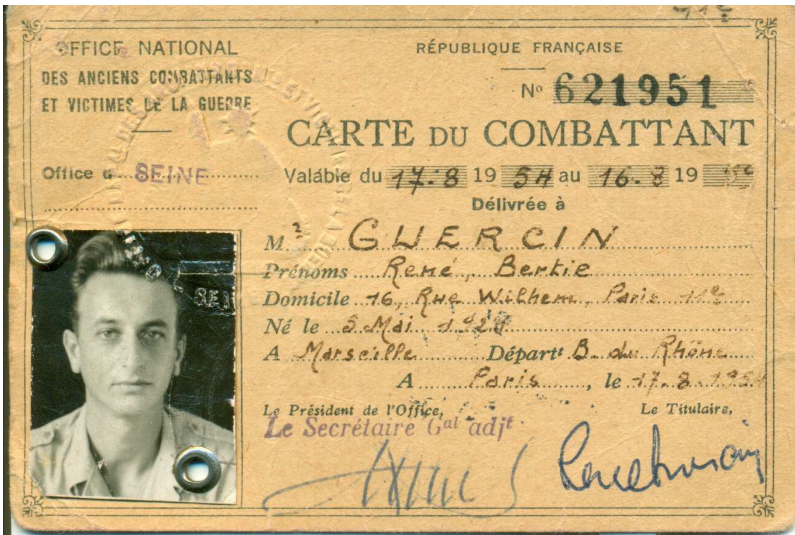 OFFICE NATIONAL
DES ANCIENS COMBATTANTS
ET VICTIMES DE LA GUERRE
Office d SEINE
RÉPUBLIQUE FRANÇAISE
No 621951
CARTE DU COMBATTANT
Valable du 17.8 19 54 au 16.8 19
Délivrée à
Mr GUERCIN
Prénoms René, Bertie
Domicile 16, Rue Wilhem, Paris
Né le 5 Mai
A Marseille Départt B. du Rhône
A Paris, le 17.8.1954
Le Président de l'Office, Le Titulaire,
Le Secrétaire Gal adjt
SEI